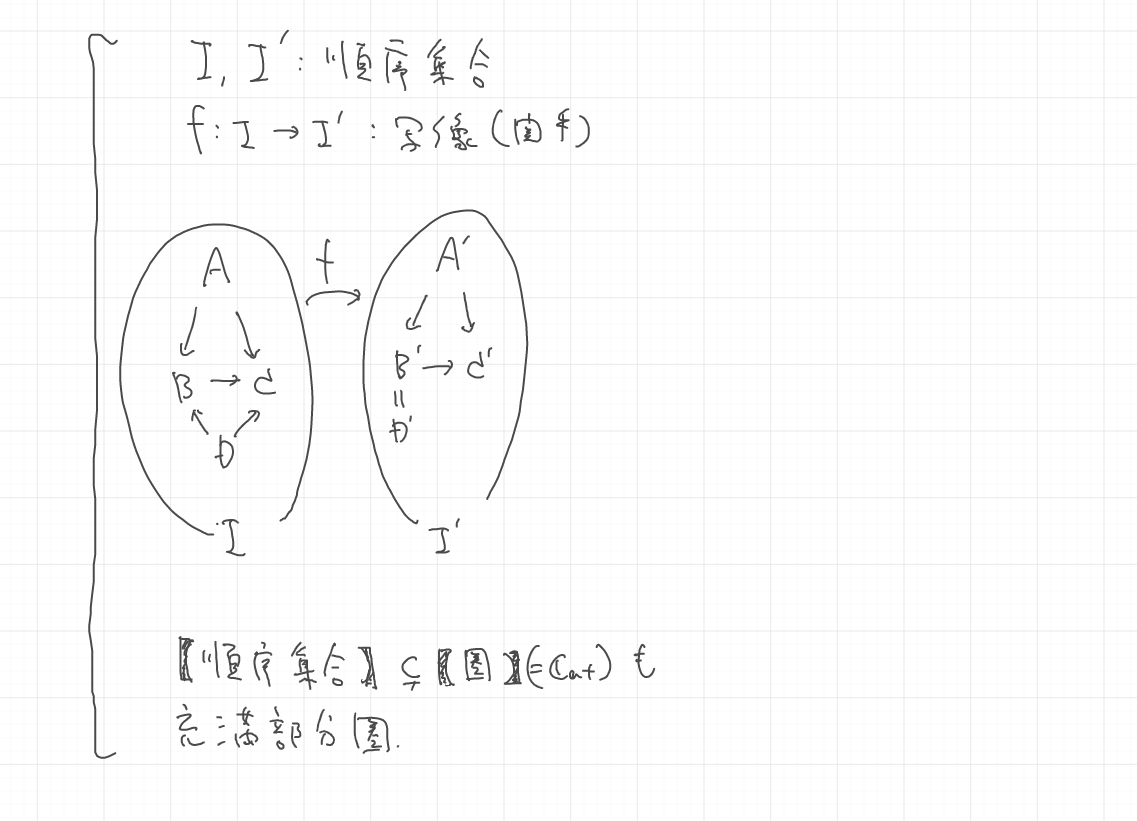 I, I′: 順序集合
f: I → I′ : 写像(関手)
f
A
A′
B → C
B′ → C′
D
=
D′
I
I′
【順序集合】⊊【圏】(=Cat) も
充満部分圏.